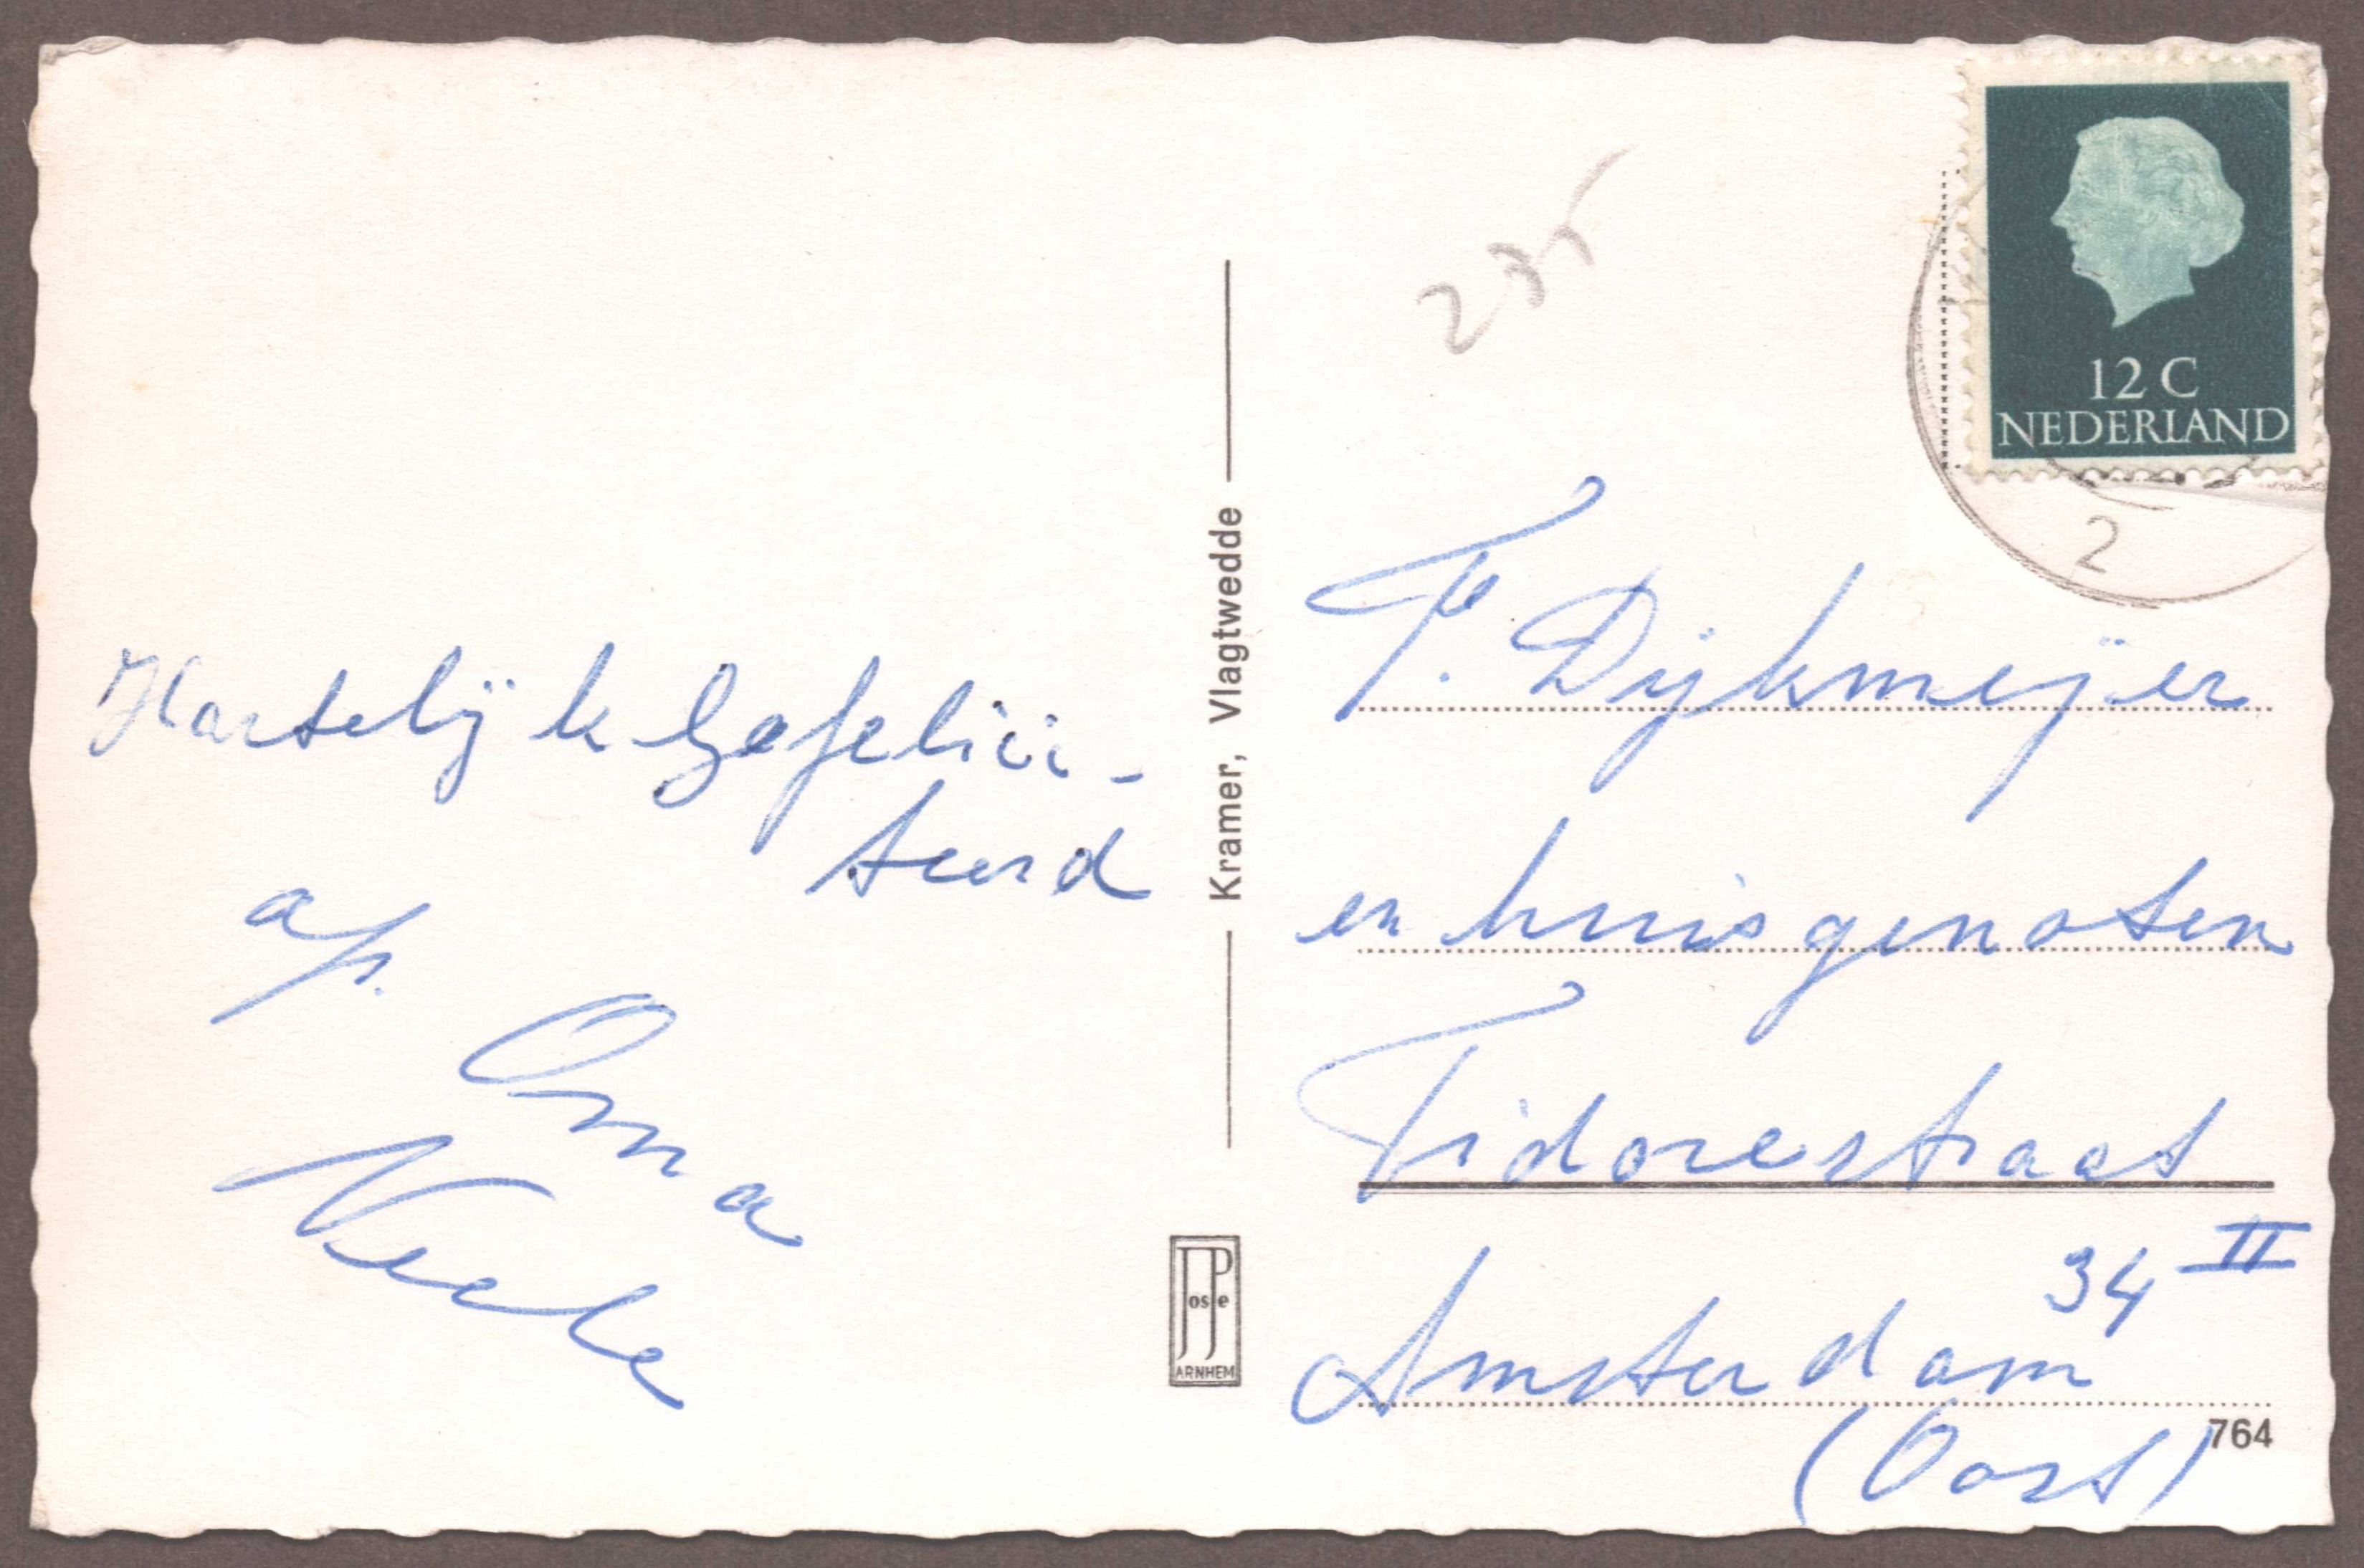 Hartelijk Gefelici-
teerd
af.
Oma
Kramer, Vlagtwedde
JosPe
ARNHEM
12 C
NEDERLAND
2
T. Dijkmeijer
en huisgenoten
Tidorestraat
34 II
Amsterdam
(Oost)
764